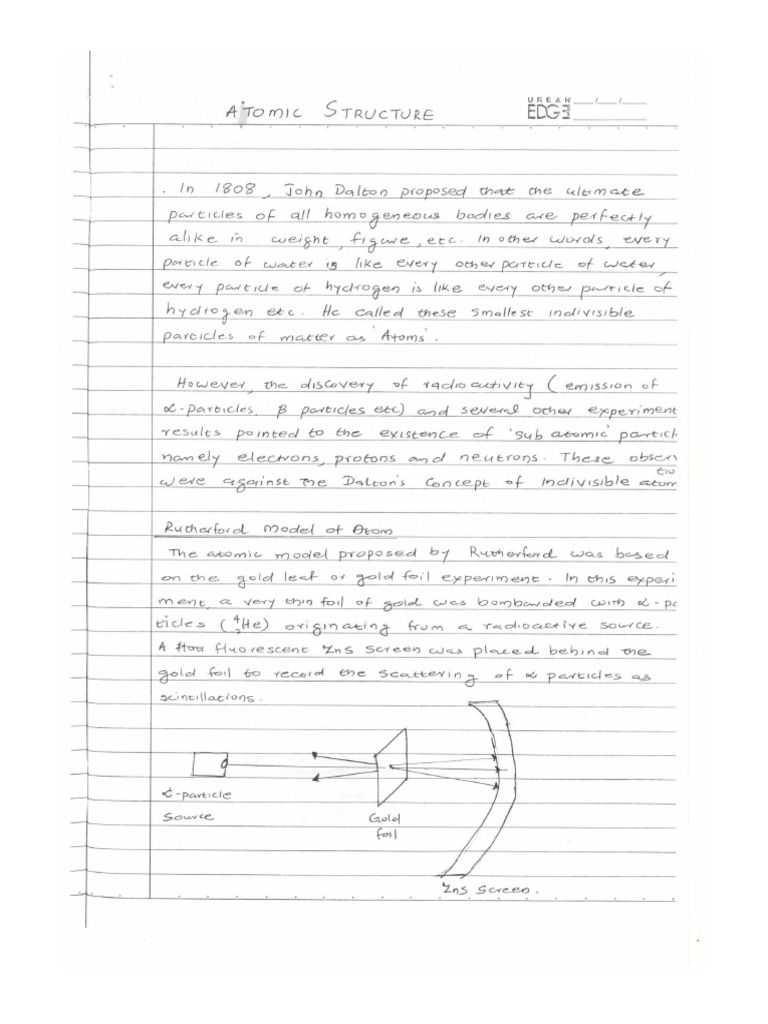 ATOMIC STRUCTURE
URBAN
EDGE
. In 1808, John Dalton proposed that the ultimate
particles of all homogeneous bodies are perfectly
alike in weight, figure, etc. In other words, every
particle of water is like every other particle of water,
every particle of hydrogen is like every other particle of
hydrogen etc. He called these smallest indivisible
particles of matter as 'Atoms'.
However, the discovery of radioactivity (emission of
α-particles, β particles etc) and several other experiment
results pointed to the existence of 'sub atomic' particl
namely electrons, protons and neutrons. These obser
tio
were against the Dalton's Concept of indivisible atom
Rutherford Model of Atom
The atomic model proposed by Rutherford was based
on the gold leaf or gold foil experiment. In this experi
ment, a very thin foil of gold was bombarded with α-pa
ticles (⁴₂He) originating from a radioactive source.
A fluorescent ZnS screen was placed behind the
gold foil to record the scattering of α particles as
scintillations.
α-particle
Source
Gold
foil
ZnS Screen.